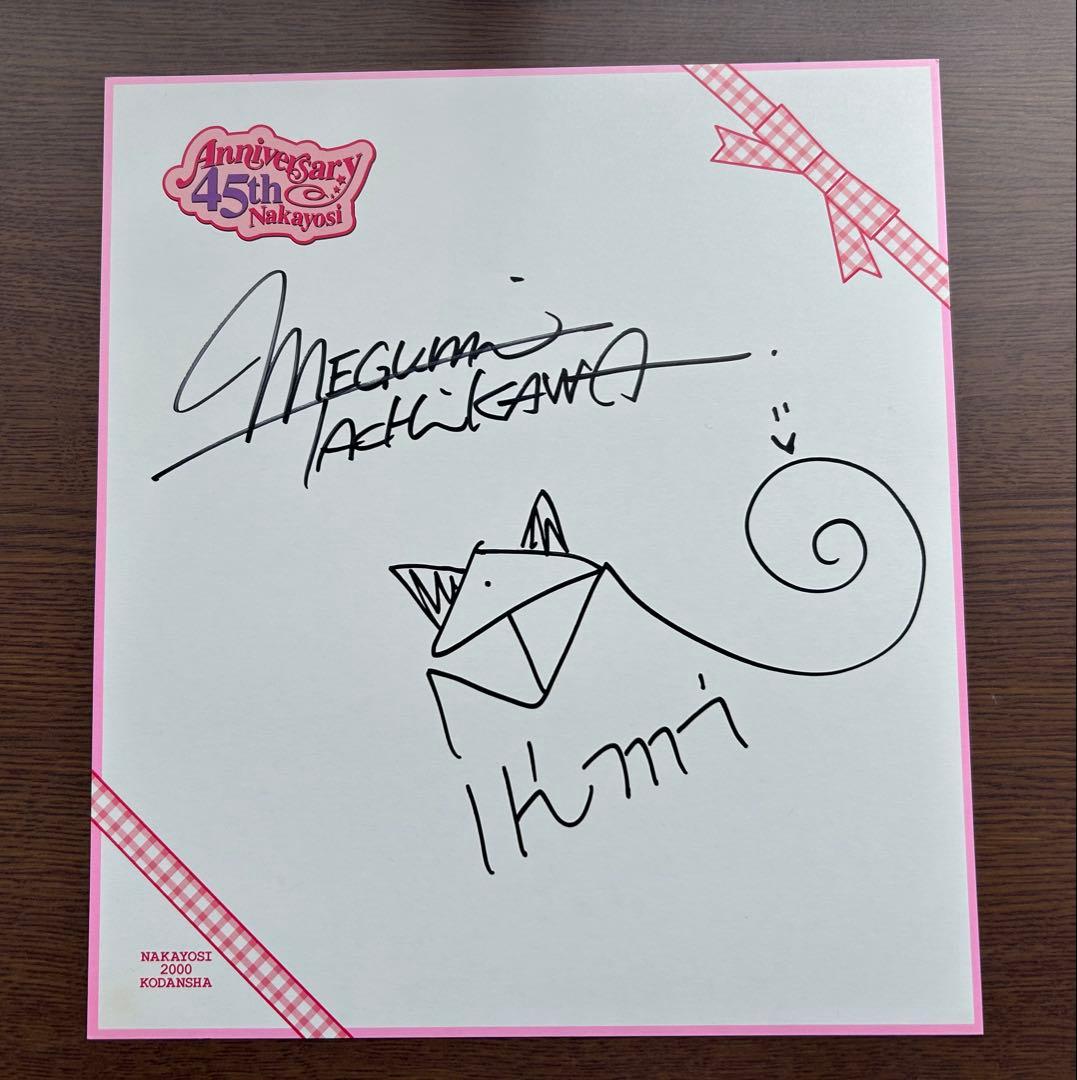 Anniversary
45th
Nakayosi
MEGUMi
TACHiKAWA
Ikumi
NAKAYOSI
2000
KODANSHA